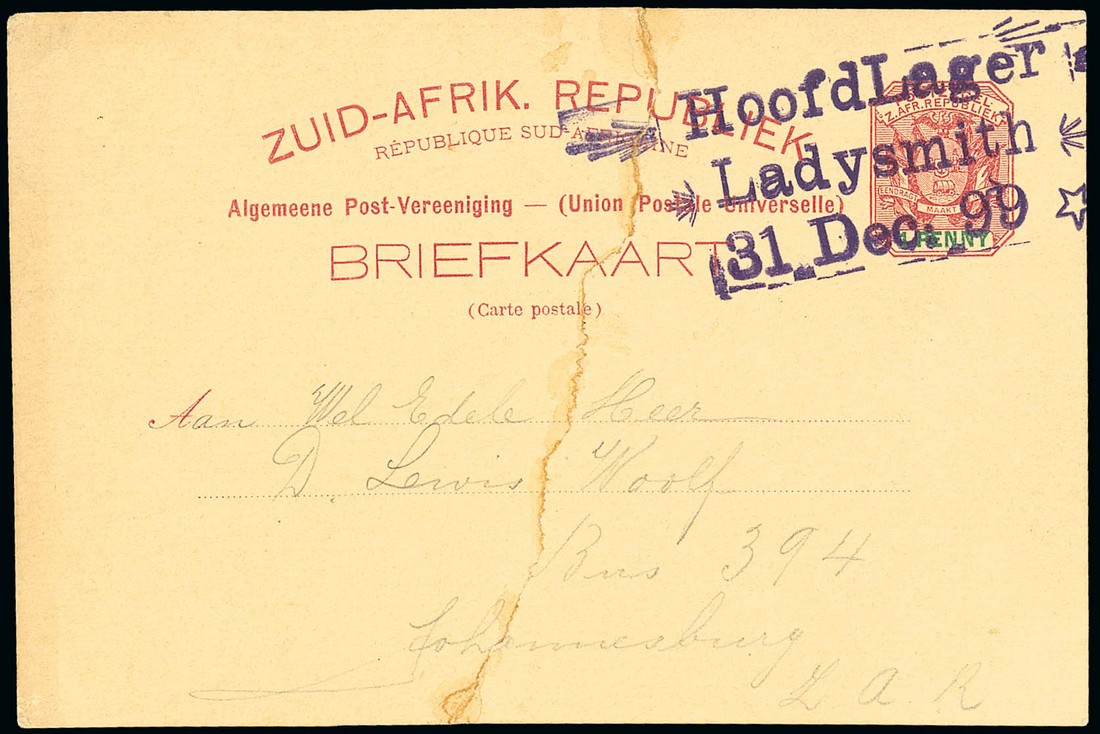 HoofdLager
Ladysmith
31 Dec. 99
ZUID-AFRIK. REPUBLIEK
RÉPUBLIQUE SUD-AFRICAINE
Algemeene Post-Vereeniging — (Union Postale Universelle)
BRIEFKAART
(Carte postale)
Z. AFR. REPUBLIEK
EENDRAGT
MAAKT
1 PENNY
Aan Wel Edele Heer
D. Lewis Woolf
Bus 394
Johannesburg
Z. A. R